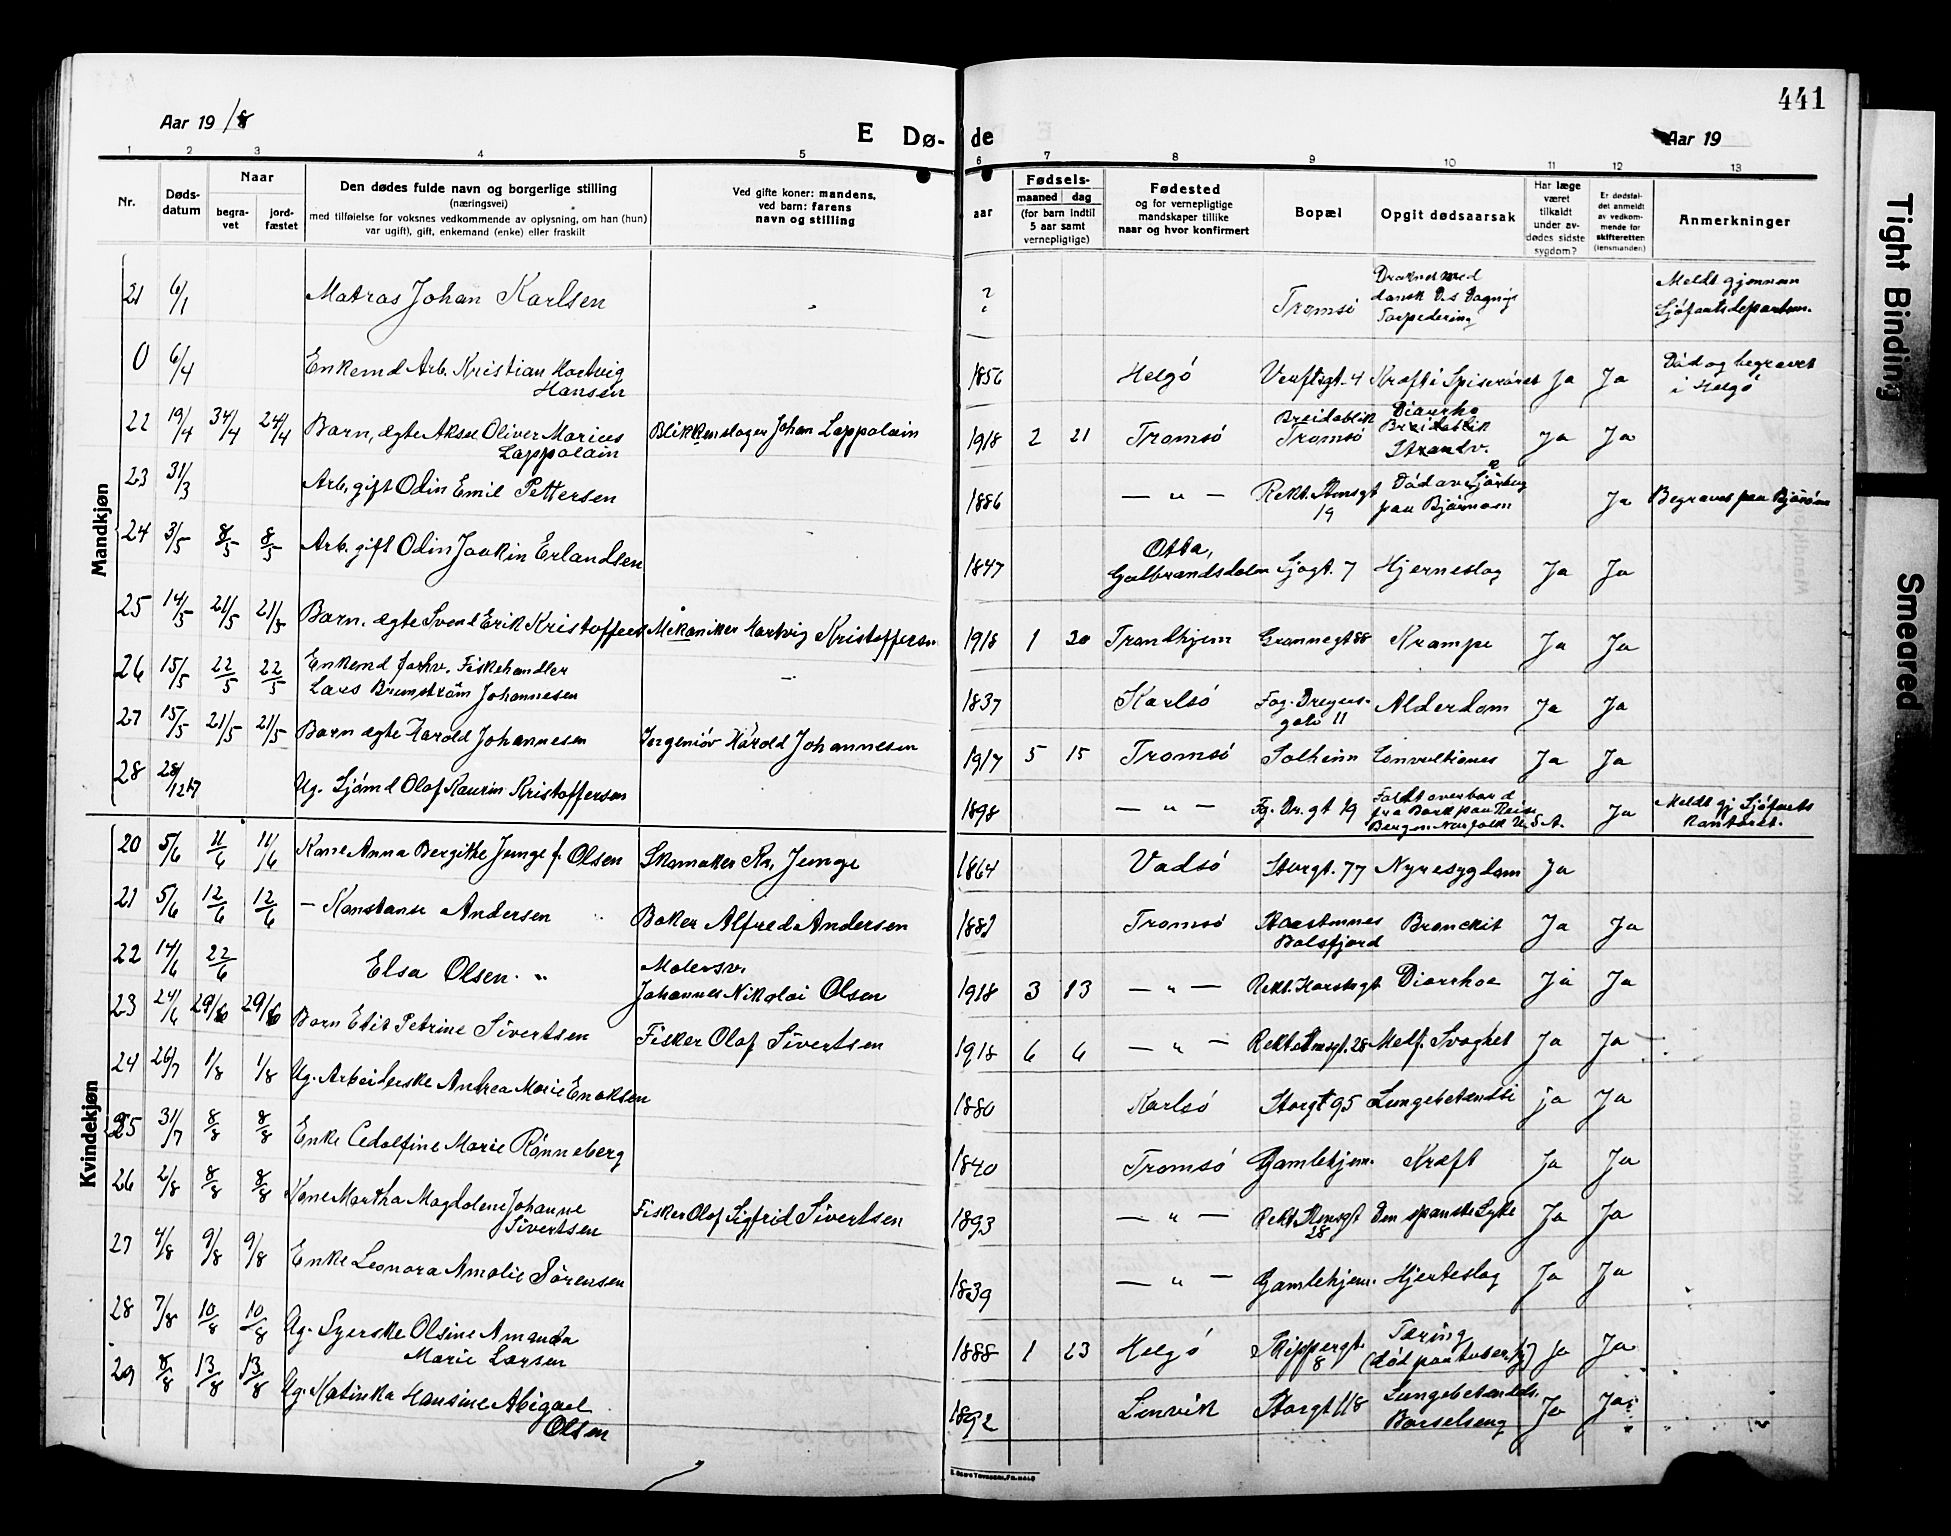 441
Aar 1918
E Dø-
de
Aar 19
Tight Binding
Smeared
1 2 3 4 5 6 7 8 9 10 11 12 13
Nr.
Døds-
datum
Naar
begra-
vet
jord-
fæstet
Den dødes fulde navn og borgerlige stilling
(næringsvei)
med tilføielse for voksnes vedkommende av oplysning, om han (hun)
var ugift), gift, enkemand (enke) eller fraskilt
Ved gifte koner: mandens,
ved barn: farens
navn og stilling
aar
Fødsels-
maaned dag
(for barn indtil
5 aar samt
vernepligtige)
Fødested
og for vernepligtige
mandskaper tillike
naar og hvor konfirmert
Bopæl
Opgit dødsaarsak
Har læge
været
tilkaldt
under av-
dødes sidste
sygdom?
Er dødsfal-
det anmeldt
av vedkom-
mende for
skifteretten
(lensmanden)
Anmerkninger
Mandkjøn
21 6/1 Matros Johan Karlsen - ? Tromsö
Druknet med
dansk D.s Dagnys
Torpedering
Meldt gjennem
Sjöfartsdepartem.
0 6/4 Enkemd Arb. Kristian Hartvig
Hansen
1856 Helgö Verftsgt. 4 Kræft i Spiseröret Ja Ja
Död og begravet
i Helgö
22 19/4 24/4 24/4 Barn, ægte Aksel Oliver Marius
Lappalain
Blikkenslager Johan Lappalain
1918 2 21 Tromsö
Breidablik
Tromsö
Diarrho
Breidablik
Strandv.
Ja Ja
23 31/3 Arb. gift Odin Emil Pettersen
1886 — „ —
Rekt. Stensgt
19
Död av Skjörbug
paa Björnöen
Ja Begravet paa Björnöen
24 3/5 8/5 8/5 Arb. gift Odin Joakin Erlandsen
1847
Otta,
Gulbrandsdalen
Sjøgt. 7 Hjerneslag Ja Ja
25 14/5 21/5 21/5 Barn, ægte Svend Erik Kristoffersen Mekaniker Hartvig Kristoffersen
1918 1 20 Trondhjem Grønnegt 88 Krampe Ja Ja
26 15/5 22/5 22/5 Enkemd forhv. Fiskehandler
Lars Brunström Johannesen -
1837 Karlsö
Fog. Dreyers-
gate 11
Alderdom Ja Ja
27 15/5 21/5 21/5 Barn ægte Harold Johannesen Ingeniör Harold Johannesen
1917 5 15 Tromsö Solheim Convultiones Ja Ja
28 28/12 17 Ug. Sjömd Olaf Kaurin Kristoffersen
1898 — „ — Fg. Dr. gt 19
Faldt overbord
fra Bark paa Reise
Bergen Norfolk U.S.A.
Ja
Meldt gj Sjöfarts
kontoret.
Kvindekjøn
20 5/6 11/6 11/6 Kone Anna Bergithe Junge f. Olsen Skomaker Kr. Junge
1864 Vadsö Storgt. 77 Nyresygdom Ja
21 5/6 12/6 12/6 — Konstanse Andersen Baker Alfred Andersen
1882 Tromsö
Balsfjord
Bronckit Ja Ja
22 14/6 22/6 Elsa Olsen. „
Malersv.
Johannes Nikolai Olsen
1918 3 13 — „ — Rekt. Horstsgt Diarrhoe Ja Ja
23 24/6 29/6 29/6 Barn Edit Petrine Sivertsen Fisker Olaf Sivertsen
1918 6 6 — „ — Rekt Stensgt. 28 Melf. Svaghet Ja Ja
24 26/7 1/8 1/8 Ug. Arbeiderske Andrea Marie Enoksen
1880 Karlsö Storgt 95 Lungebetændelse ja Ja
25 31/7 8/8 8/8 Enke Cedolfine Marie Rönneberg
1840 Tromsö Gamlehjem. Kræft Ja Ja
26 2/8 8/8 8/8 Kone Martha Magdalene Johanne
Sivertsen
Fisker Olaf Sigfrid Sivertsen
1893 — „ —
Rekt Stensgt
28
Den spanske Syke Ja Ja
27 4/8 9/8 9/8 Enke Leonora Amalie Sörensen
1839 — „ — Gamlehjem. Hjerteslag Ja Ja
28 7/8 10/8 10/8 Ug. Syerske Olsine Amanda
Marie Larsen
1888 1 23 Helgö
Skippergt.
8
Tæring
(död paa tuber.hj)
Ja Ja
29 8/8 13/8 13/8 Ug. Katinka Hansine Abigael
Olsen
1892 Lenvik Storgt 118
Lungebetændels.
Barselseng
Ja Ja